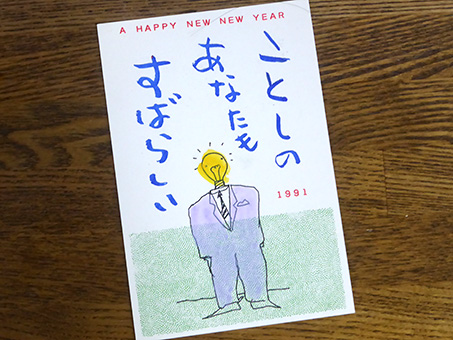 A HAPPY NEW NEW YEAR
ことしの
あなたも
すばらしい
1991